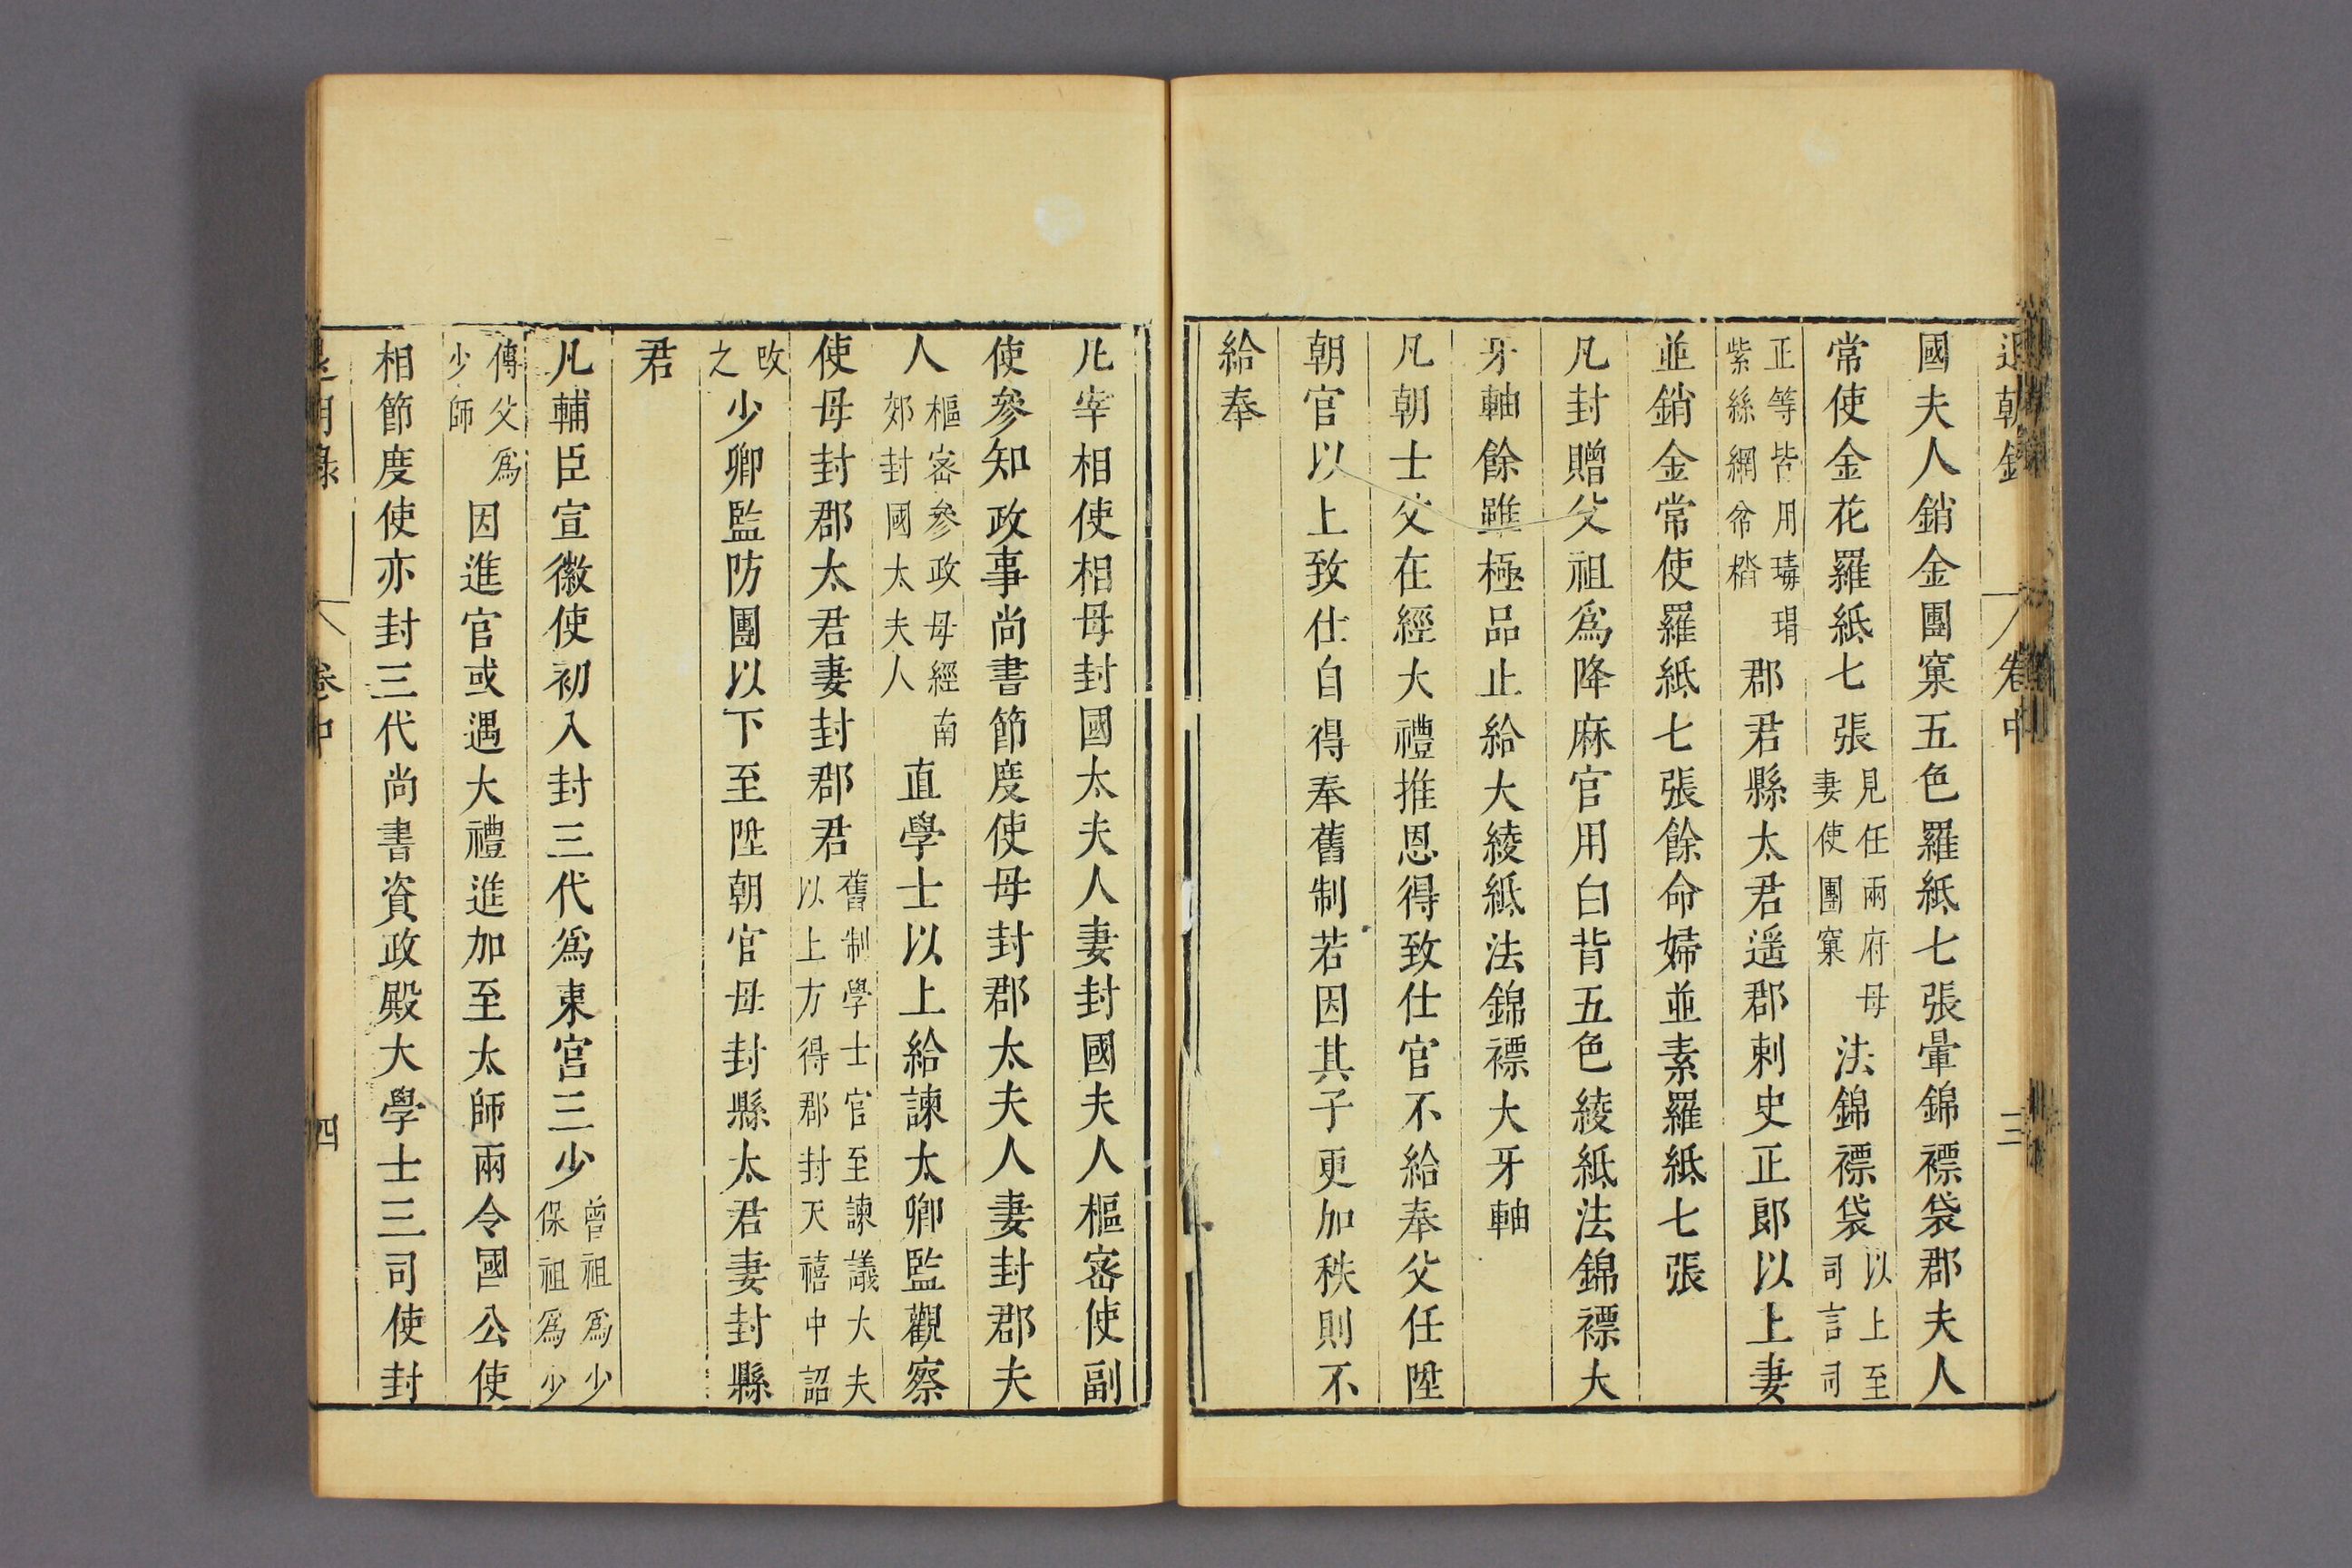 退朝錄 卷中 三
國夫人銷金團窠五色羅紙七張暈錦褾袋郡夫人
常使金花羅紙七張見任兩府母妻使團窠法錦褾袋以上至司言司
正等皆用瑇瑁紫絲網帉楷郡君縣太君遥郡刺史正郎以上妻
並銷金常使羅紙七張餘命婦並素羅紙七張
凡封贈父祖爲降麻官用白背五色綾紙法錦褾大
牙軸餘雖極品止給大綾紙法錦褾大牙軸
凡朝士父在經大禮推恩得致仕官不給奉父任陞
朝官以上致仕自得奉舊制若因其子更加秩則不
給奉
凡宰相使相母封國太夫人妻封國夫人樞密使副
使參知政事尚書節度使母封郡太夫人妻封郡夫
人樞密參政母經南郊封國太夫人直學士以上給諫太卿監觀察
使母封郡太君妻封郡君舊制學士官至諫議大夫以上方得郡封天禧中詔
改之少卿監防團以下至陞朝官母封縣太君妻封縣
君
凡輔臣宣徽使初入封三代爲東宮三少曾祖爲少保祖爲少
傳父爲少師因進官或遇大禮進加至太師兩令國公使
相節度使亦封三代尚書資政殿大學士三司使封
退朝錄 卷中 四